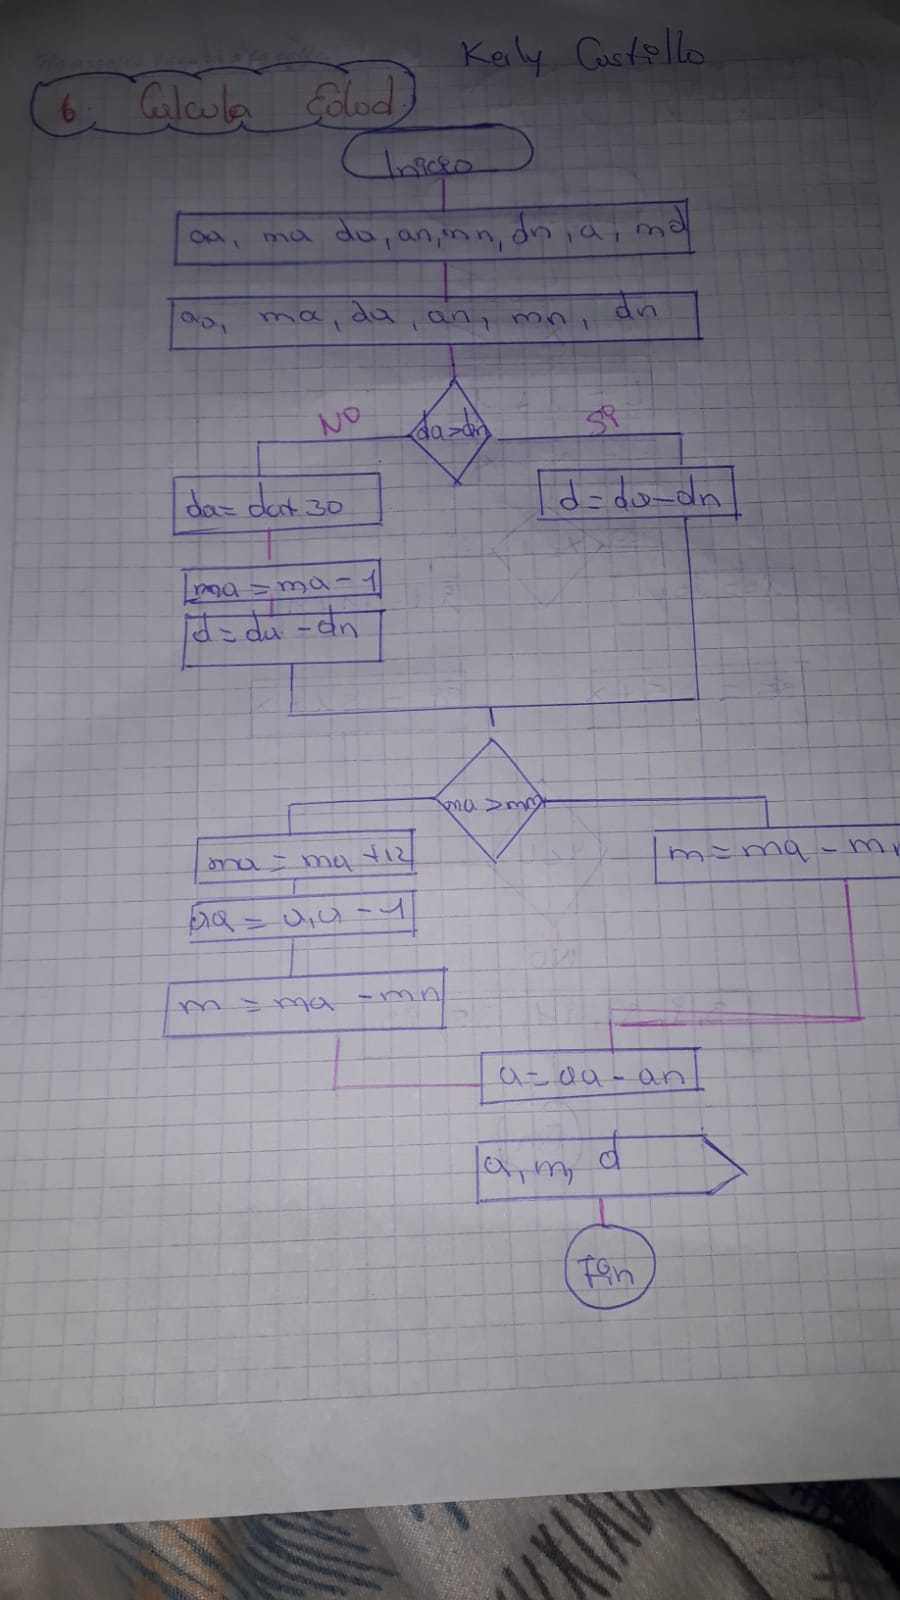 Kerly Castillo
6. Calcula Edad.
Inicio
aa, ma da, an, mn, dn, a, m d
aa, ma, da, an, mn, dn
da>dn
NO
Si
da= da+ 30
d= da-dn
ma = ma - 1
d= da - dn
ma > mn
ma = ma +12
m = ma - mn
aa = aa - 1
m = ma - mn
a= aa - an
a, m, d
Fin